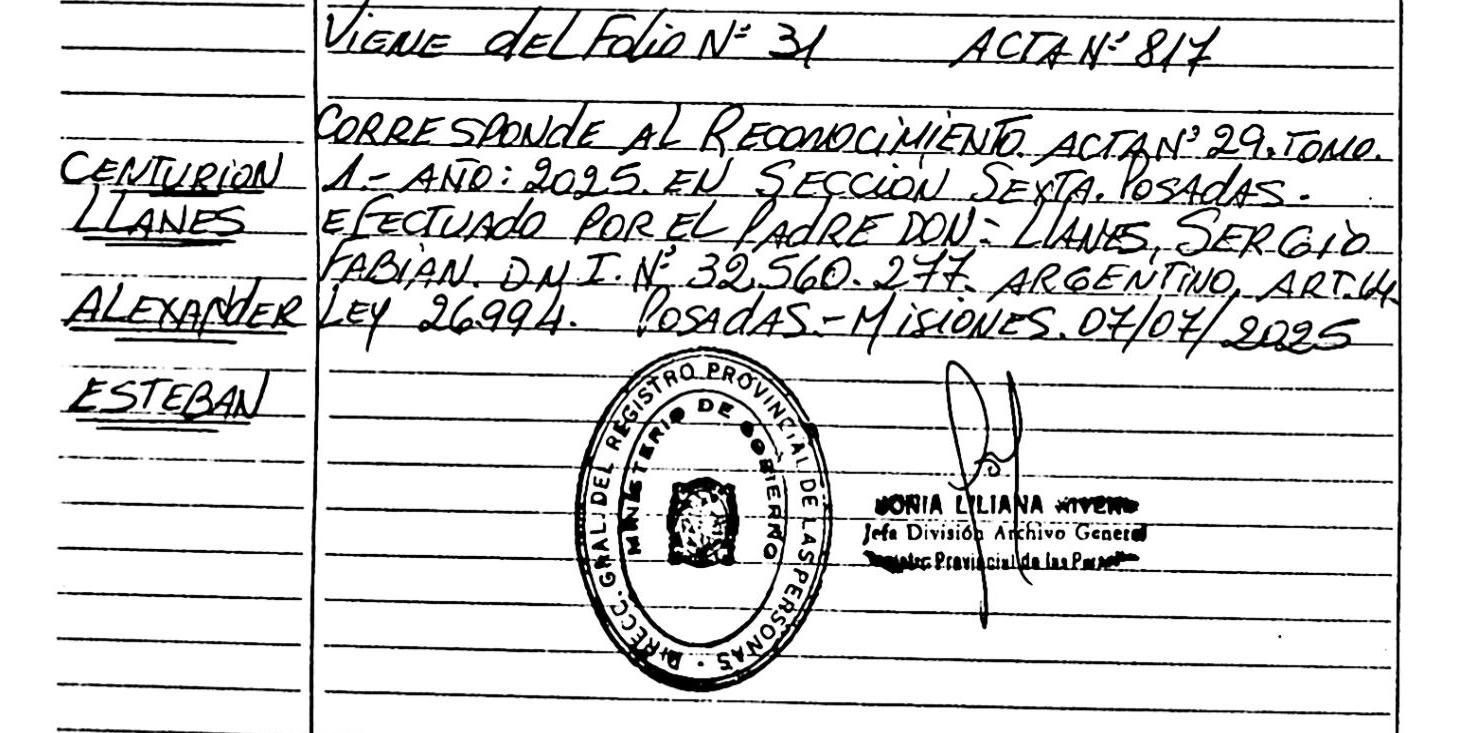 Viene del Folio Nº 31 ACTA Nº 817
CORRESPONDE AL RECONOCIMIENTO. ACTA Nº 29. TOMO.
1.- AÑO: 2025. EN SECCIÓN SEXTA. POSADAS.-
EFECTUADO POR EL PADRE DON: LLANES, SERGIO
FABIÁN. D.N.I. Nº 32.560.277. ARGENTINO, ART. 64.
LEY 26994. POSADAS.- MISIONES. 07/07/2025
CENTURION
LLANES
ALEXANDER
ESTEBAN
DIRECC. GRAL. DEL REGISTRO PROVINCIAL DE LAS PERSONAS
MINISTERIO DE GOBIERNO
SONIA LILIANA
Jefa División Archivo General
Provincial de las